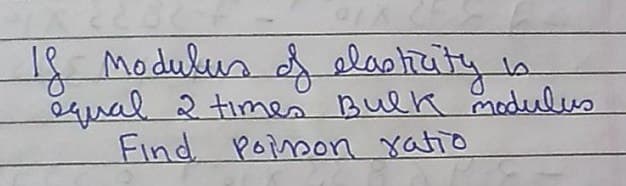 If Modulus of elasticity is
equal 2 times Bulk modulus
Find Poisson ratio